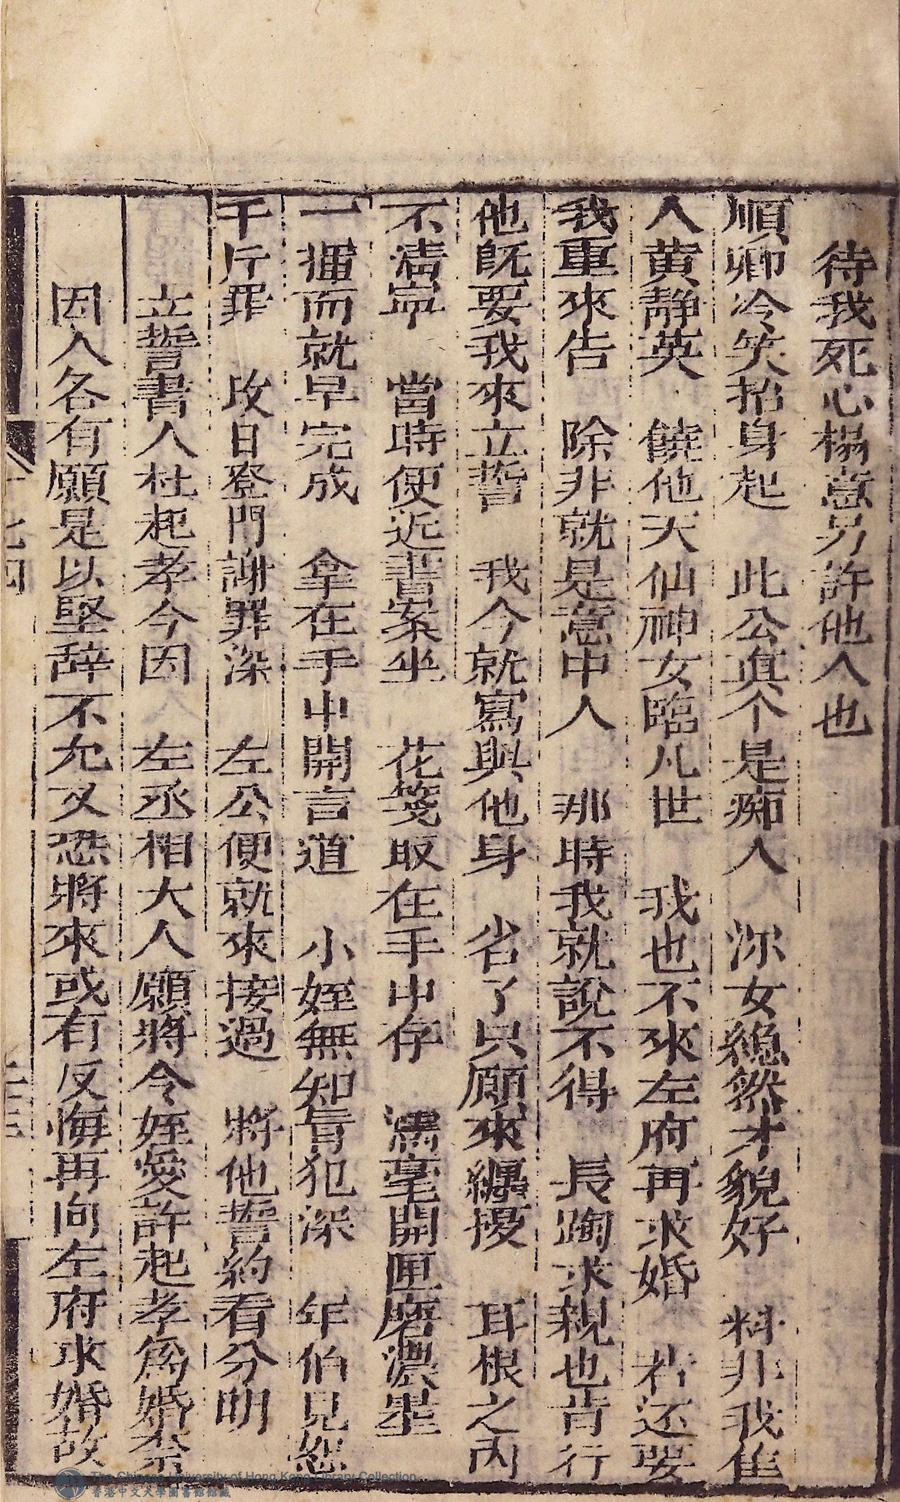 待我死心楊意另許他人也
順卿冷笑招身起　此公真个是痴人　你女縂然才貌好　料非我隹
人黄静英　饒他天仙神女臨凡世　我也不來左府再求婚　若还要
我重來告　除非就是意中人　那時我就說不得　長跪求親也肯行
他既要我來立誓　我今就寫與他身　省了只願來纏擾　耳根之內
不清寧　當時便近書案坐　花箋取在手中存　濡毫開匣磨濃墨
一揮而就早完成　拿在手中開言道　小姪無知冐犯深　年伯見恕
千斤罪　攻日登門謝罪深　左公便就來接過　將他誓約看分明
立誓書人杜起孝今因　左丞相大人願將令姪愛許起孝爲婚奈
因人各有願是以堅辞不允又恐將來或有反悔再向左府求婚故
The Chinese University of Hong Kong Library Collection
香港中文大學圖書館館藏